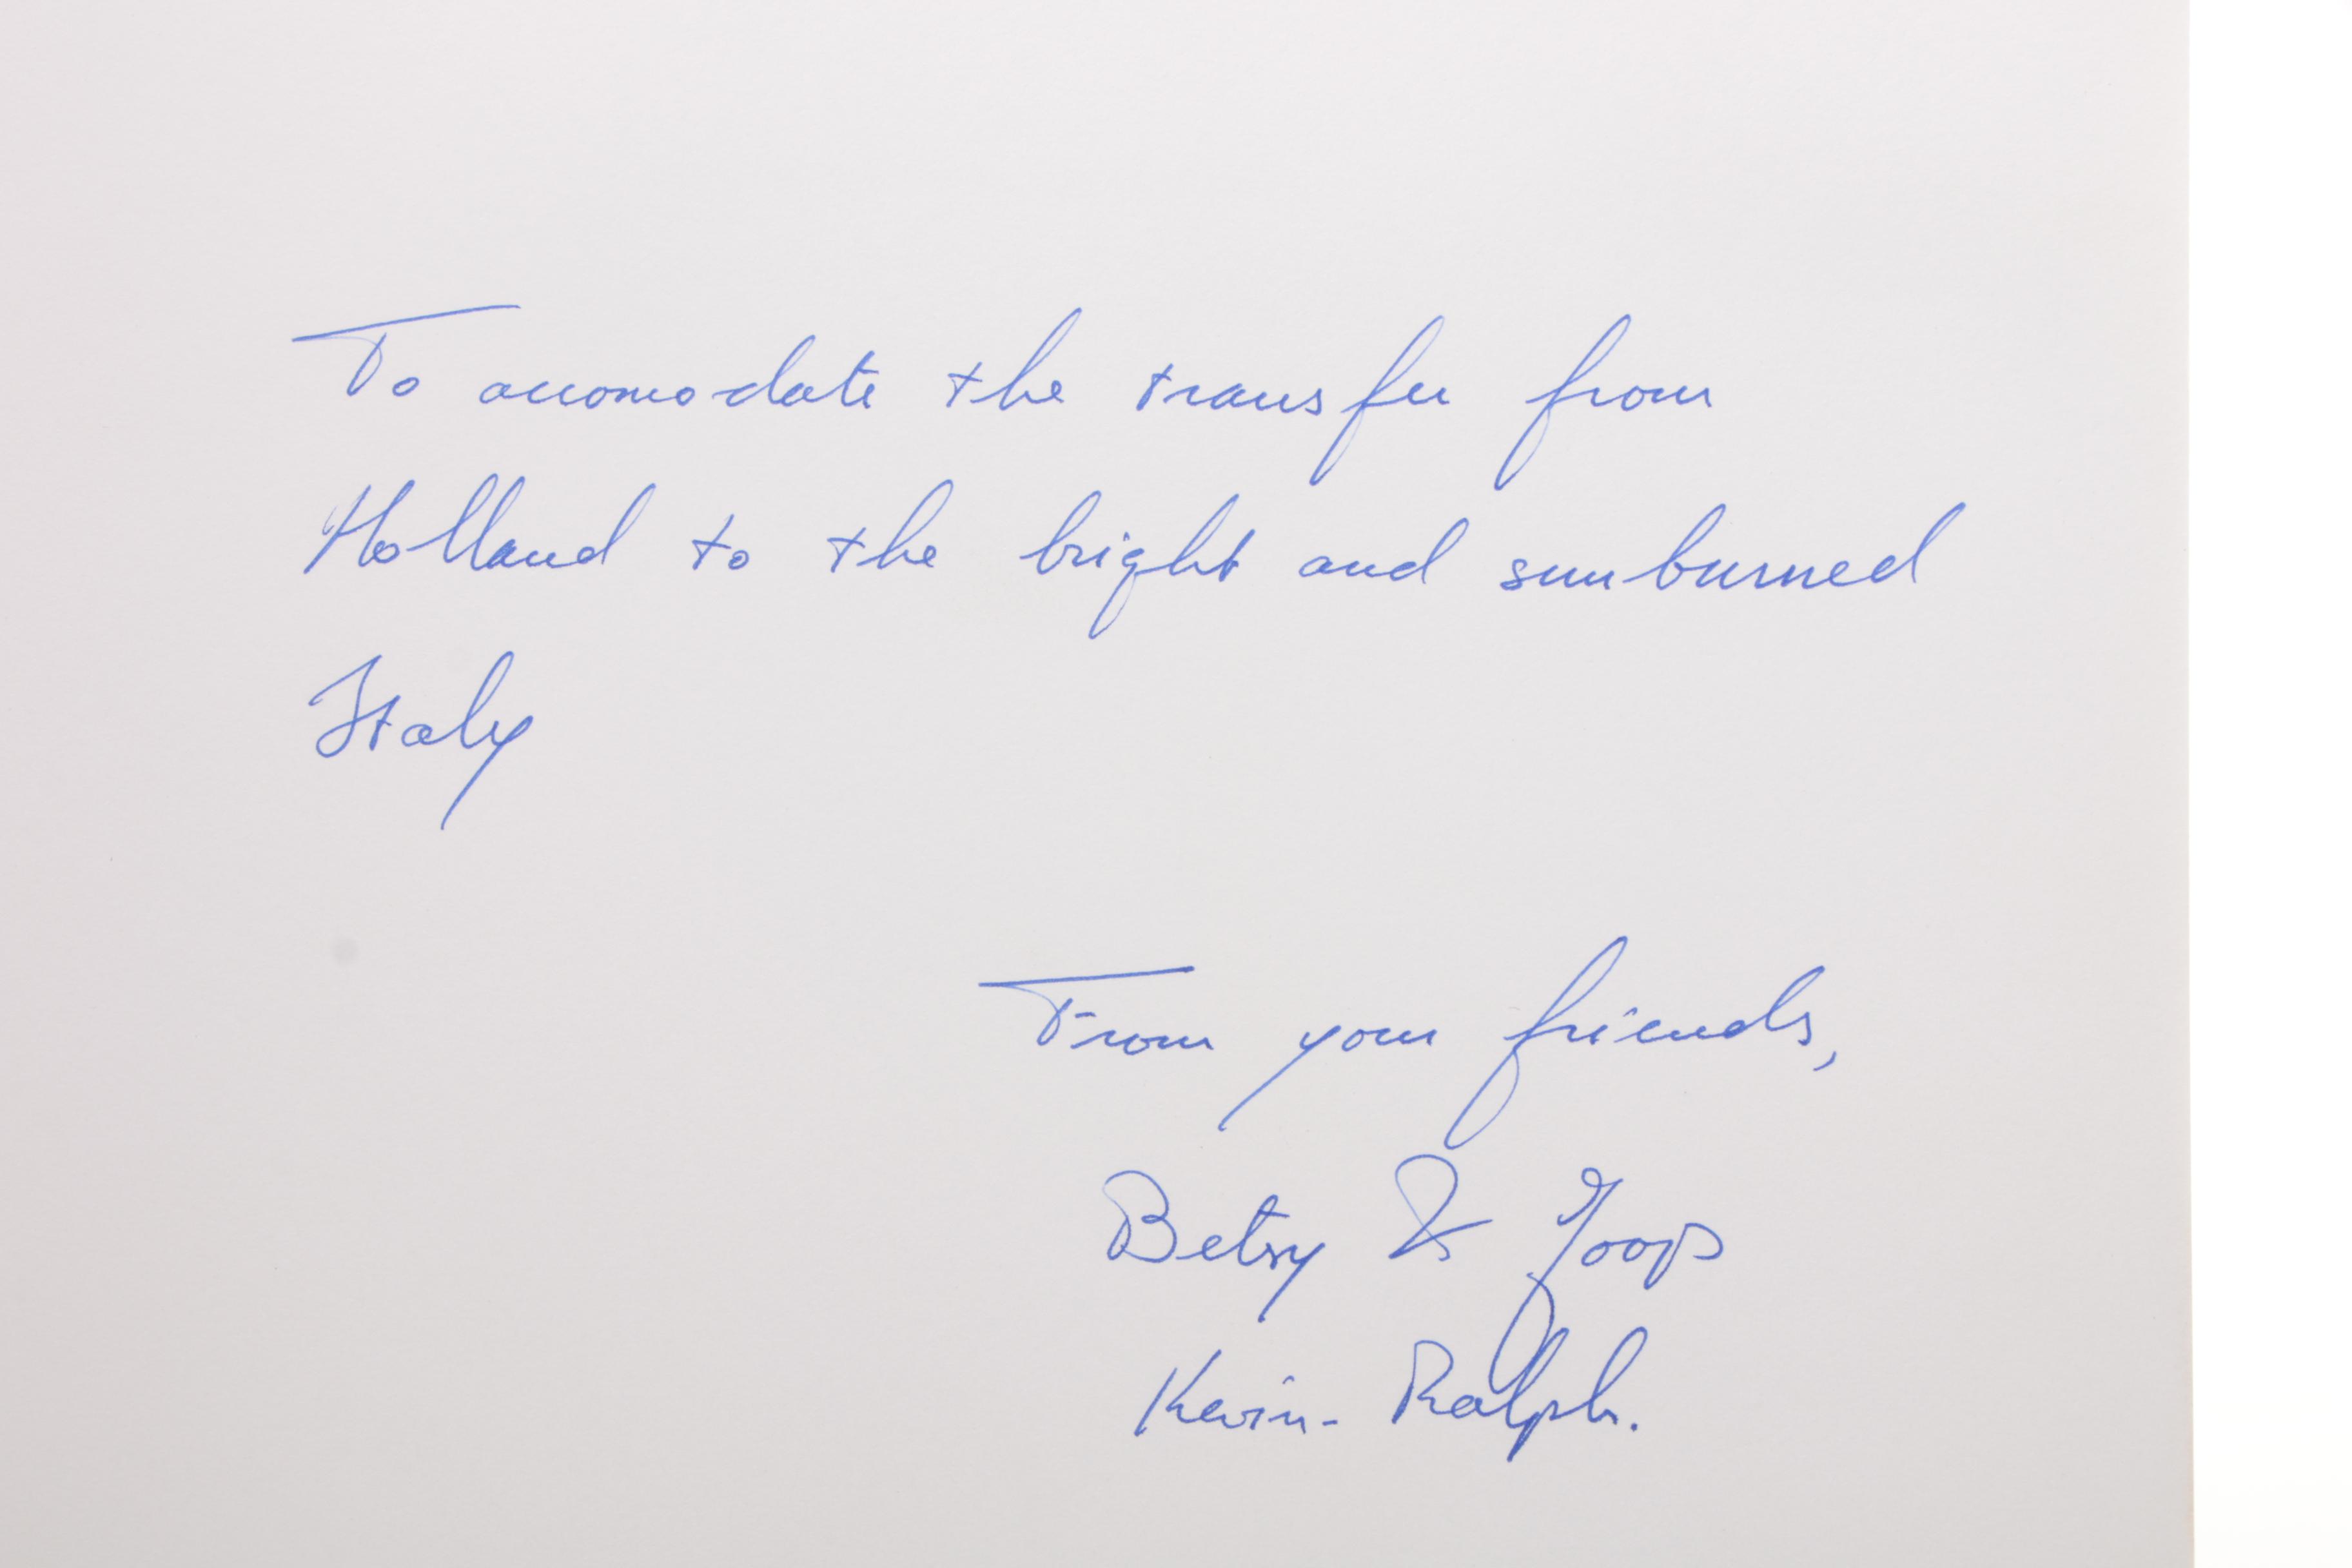 To accomodate the transfer from
Holland to the bright and sunburned
Italy
From your friends,
Betsy & Joop
Kevin - Ralph.